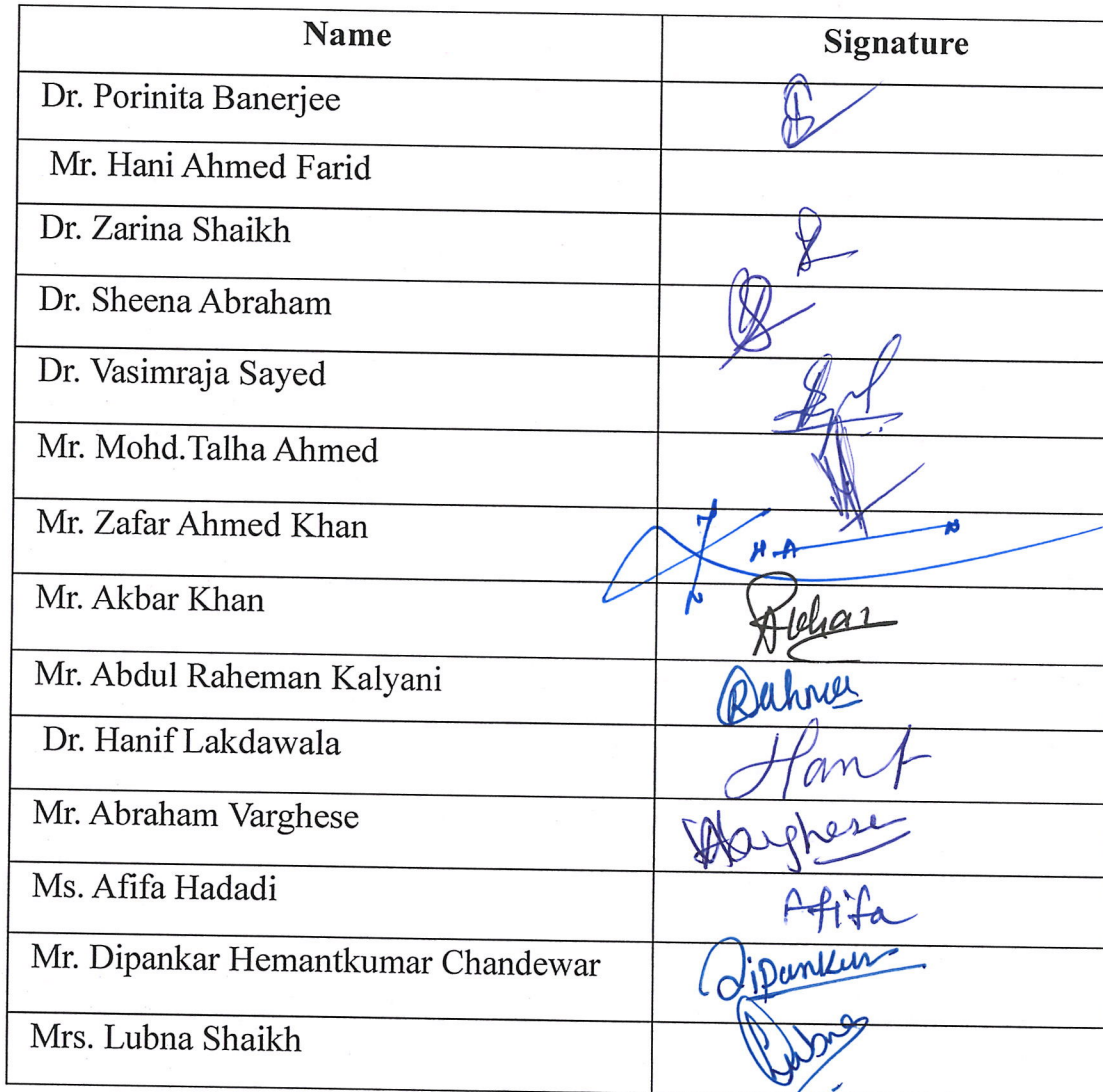 Name Signature
Dr. Porinita Banerjee
Mr. Hani Ahmed Farid
Dr. Zarina Shaikh
Dr. Sheena Abraham
Dr. Vasimraja Sayed
Mr. Mohd.Talha Ahmed
Mr. Zafar Ahmed Khan
Mr. Akbar Khan Akbar
Mr. Abdul Raheman Kalyani
Dr. Hanif Lakdawala Hanif
Mr. Abraham Varghese Varghese
Ms. Afifa Hadadi Afifa
Mr. Dipankar Hemantkumar Chandewar Dipankar
Mrs. Lubna Shaikh Lubna